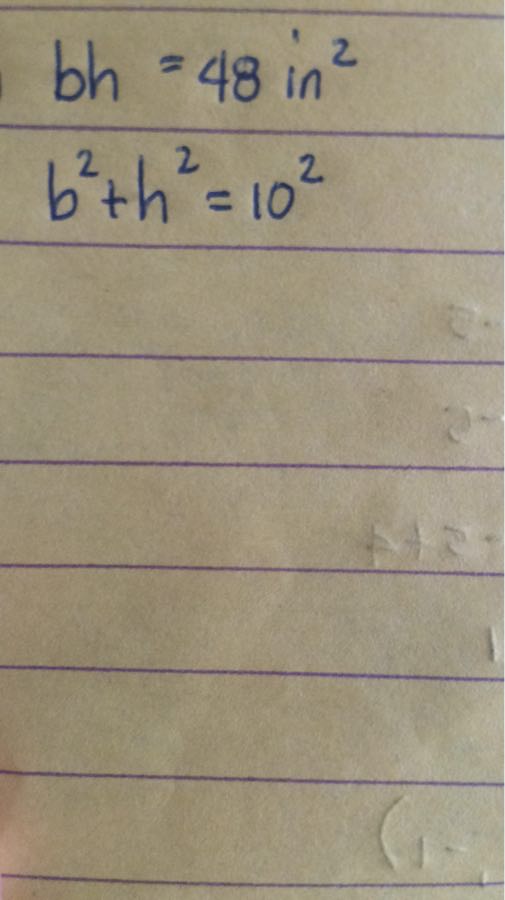 bh = 48 in²
b² + h² = 10²